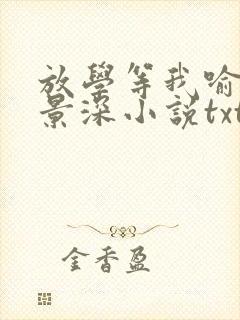 放學等我喻
景深小説txt
金香盈